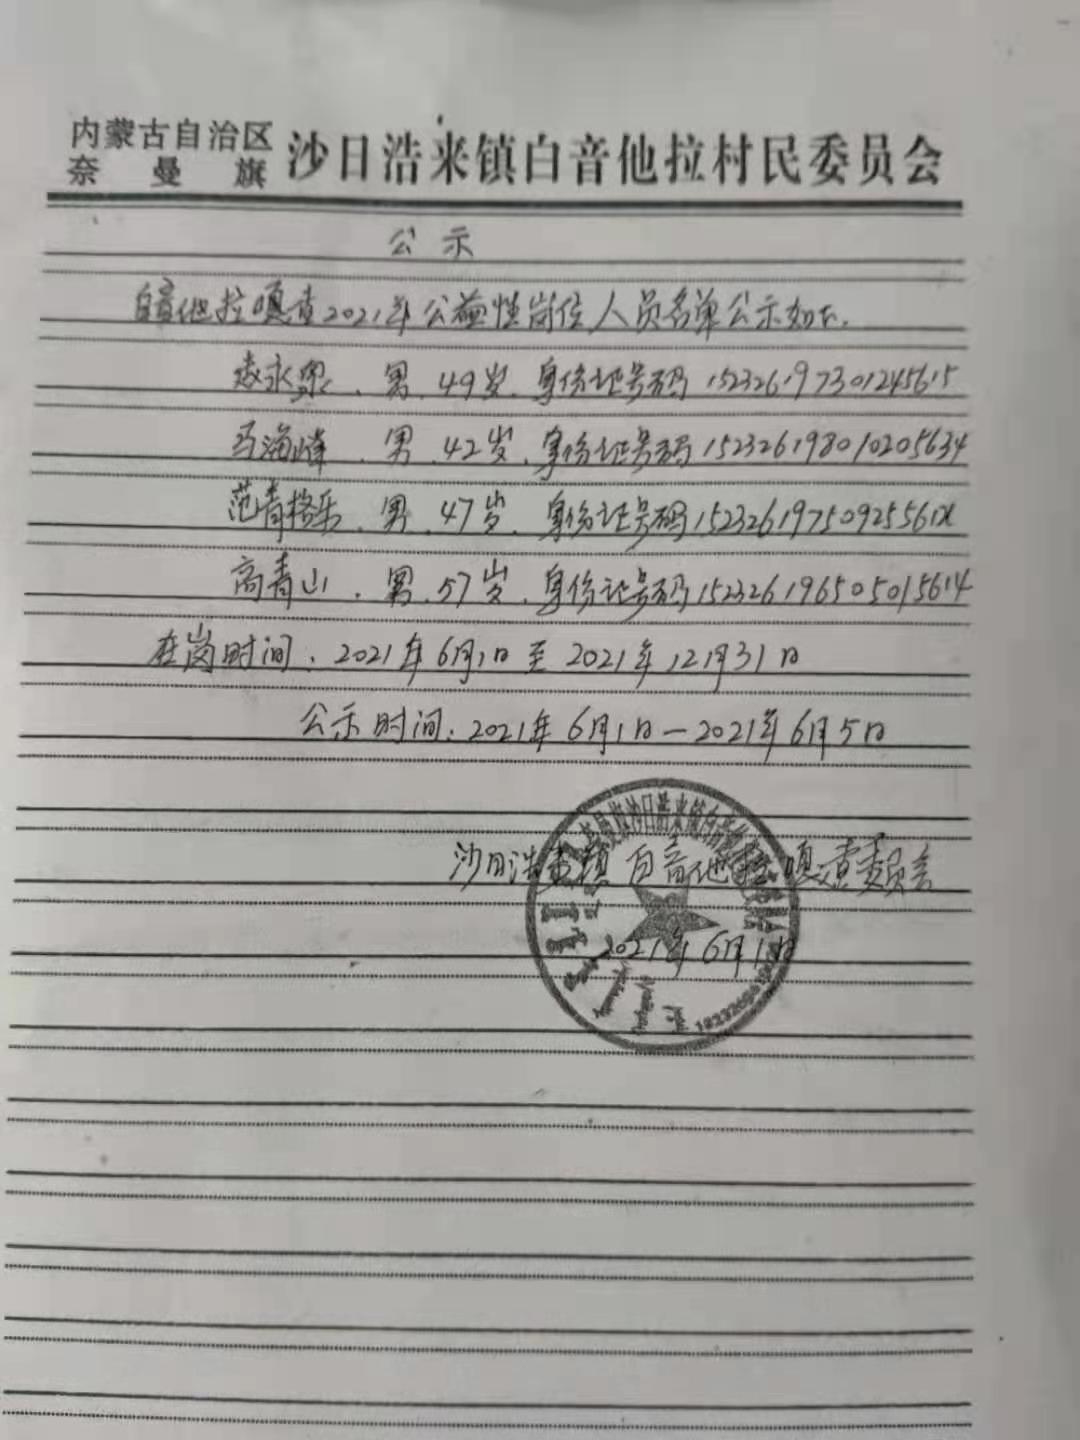 内蒙古自治区
奈曼旗
沙日浩来镇白音他拉村民委员会
公示
白音他拉嘎查2021年公益性岗位人员名单公示如下.
永泉、男、49岁、身份证号码152326197301245615
马海峰、男、42岁、身份证号码152326198010205634
范青格乐、男、47岁、身份证号码15232619750925561X
高青山、男、57岁、身份证号码152326196505015614
在岗时间:2021年6月1日至2021年12月31日
公示时间:2021年6月1日—2021年6月5日
沙日浩来镇白音他拉嘎查委员会
2021年6月1日